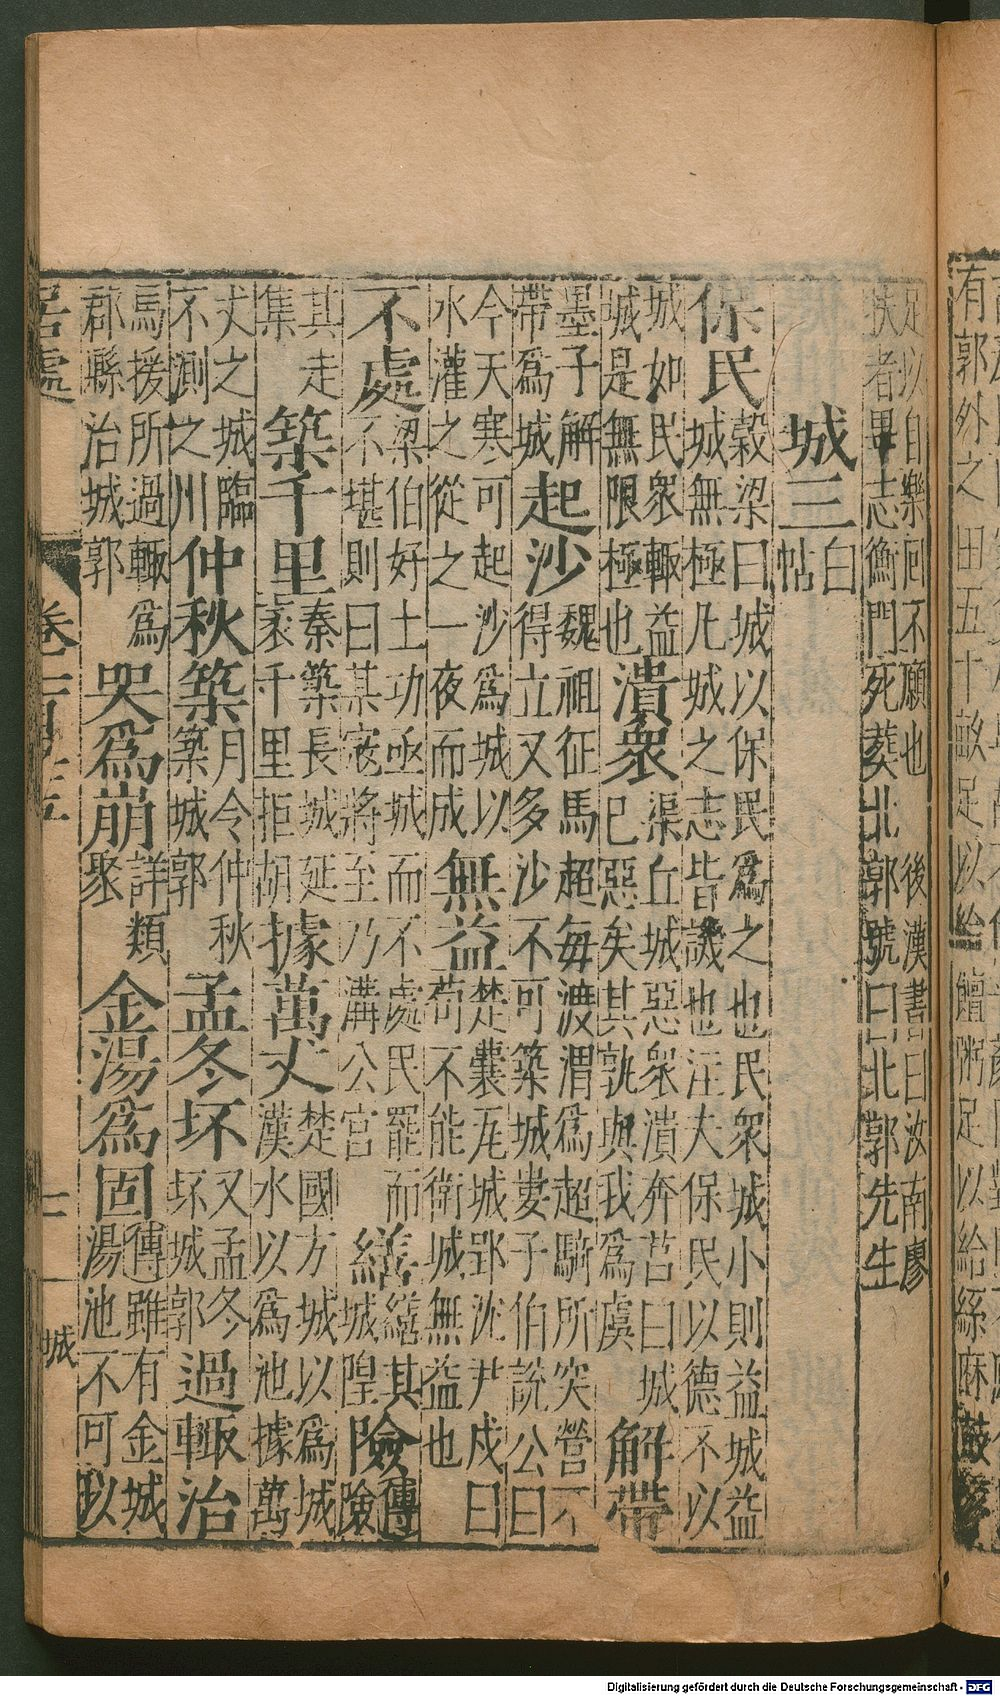 足以自樂回不願也 後漢書曰汝南廖
扶者畢志衡門死葬北郭號曰北郭先生
城三
白
帖
保民
穀梁曰城以保民爲之也民衆城小則益城益
城無極凡城之志皆譏也注大保民以德不以
城如民衆輙益
城是無限極也
潰衆
渠丘城惡衆潰奔莒曰城
已惡矣其孰與我爲虞
解帶
墨子解
帶爲城
起沙
魏祖征馬超每渡渭爲超騎所突營不
得立又多沙不可築城婁子伯説公曰
今天寒可起沙爲城以
水灌之從之一夜而成
無益
楚囊瓦城郢沈尹戌曰
苟不能衛城無益也
不處
梁伯好土功亟城而不處民罷而
不堪則曰某寇將至乃溝公宮
繕
繕其
城隍
險
傳
險
其走
集
築千里
秦築長城延
袤千里拒胡
據萬丈
楚國方城以爲城
漢水以爲池據萬
丈之城臨
不測之川
仲秋築
月令仲秋
築城郭
孟冬坏
又孟冬
坏城郭
過輙治
馬援所過輙爲
郡縣治城郭
哭爲崩
詳類
聚
金湯爲固
傳雖有金城
湯池不可以
居處
城
有郭外之田五十畝足以給饘粥足以給絲麻鼓
Digitalisierung gefördert durch die Deutsche Forschungsgemeinschaft - DFG